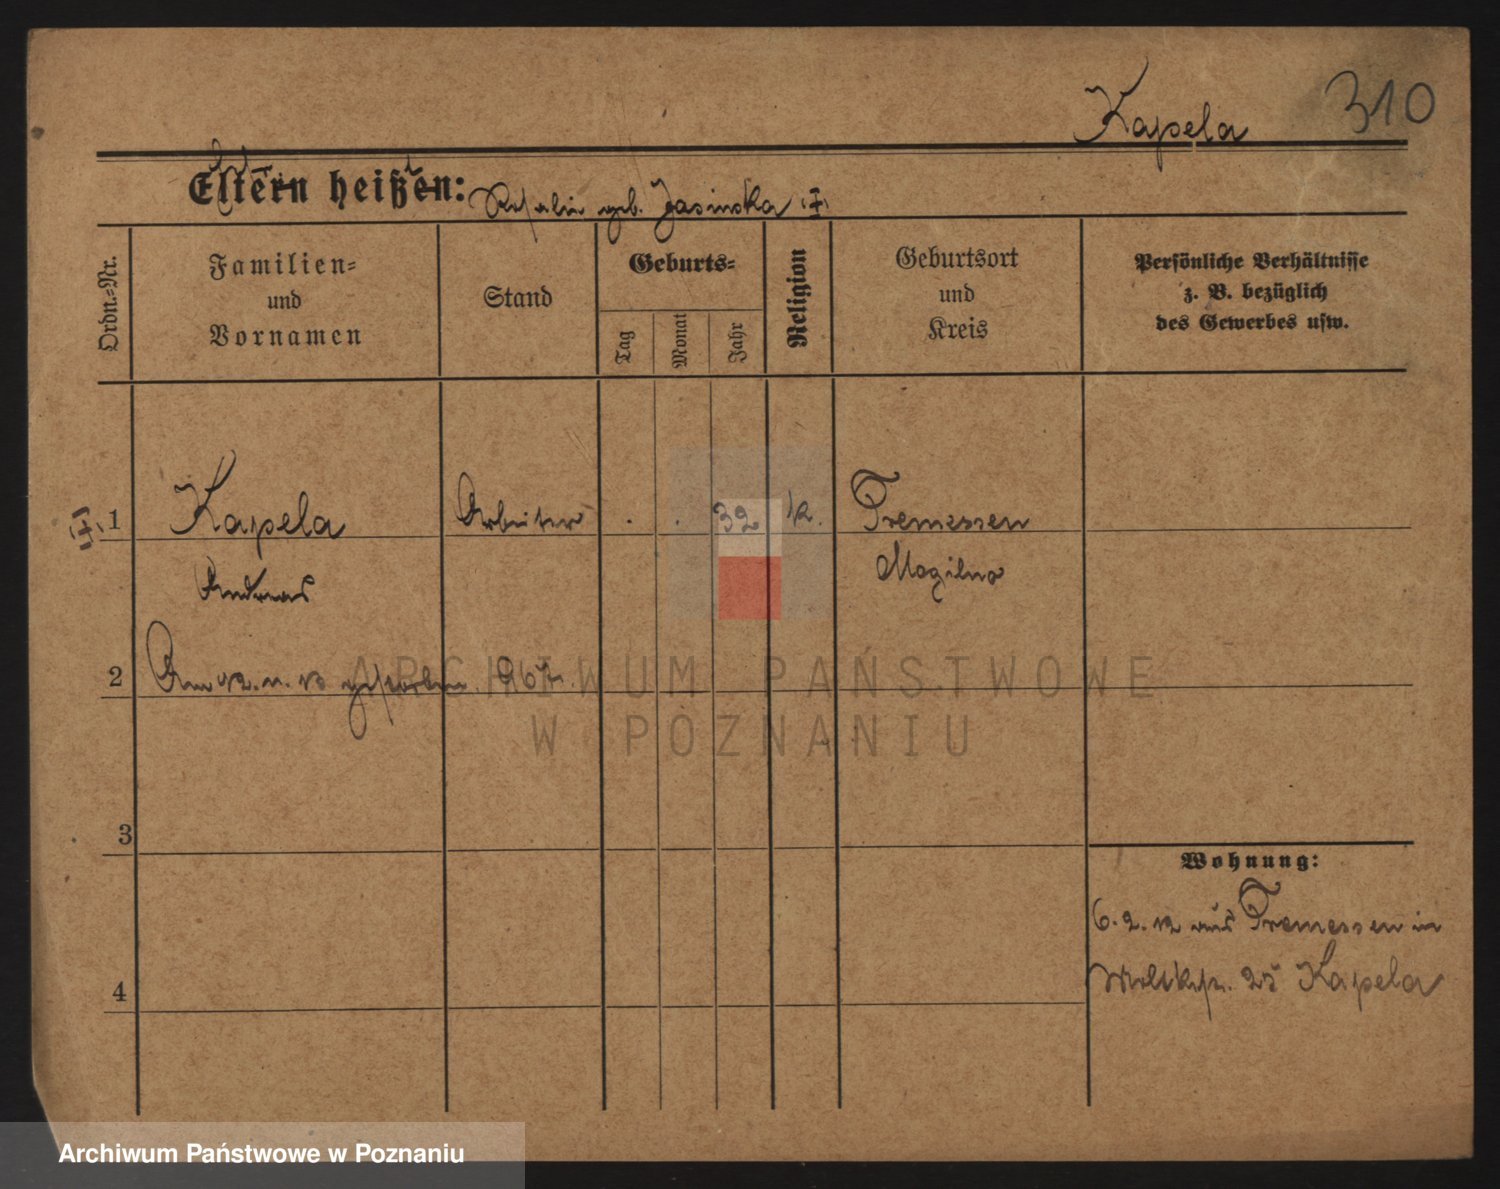 310
Kapela
Eltern heißen: Rosalie geb. Jasinska
Ordn.=Nr.
Familien=
und
Vornamen
Stand
Geburts=
Tag
Monat
Jahr
Religion
Geburtsort
und
Kreis
Persönliche Verhältnisse
z. B. bezüglich
des Gewerbes usw.
1 Kapela Arbeiter . . 32 k. Tremessen
Andreas Mogilno
2 Am gestorben.
ARCHIWUM PAŃSTWOWE
W POZNANIU
3
Wohnung:
6.2.12 aus Tremessen in
4 Moltkestr. 25 Kapela
Archiwum Państwowe w Poznaniu